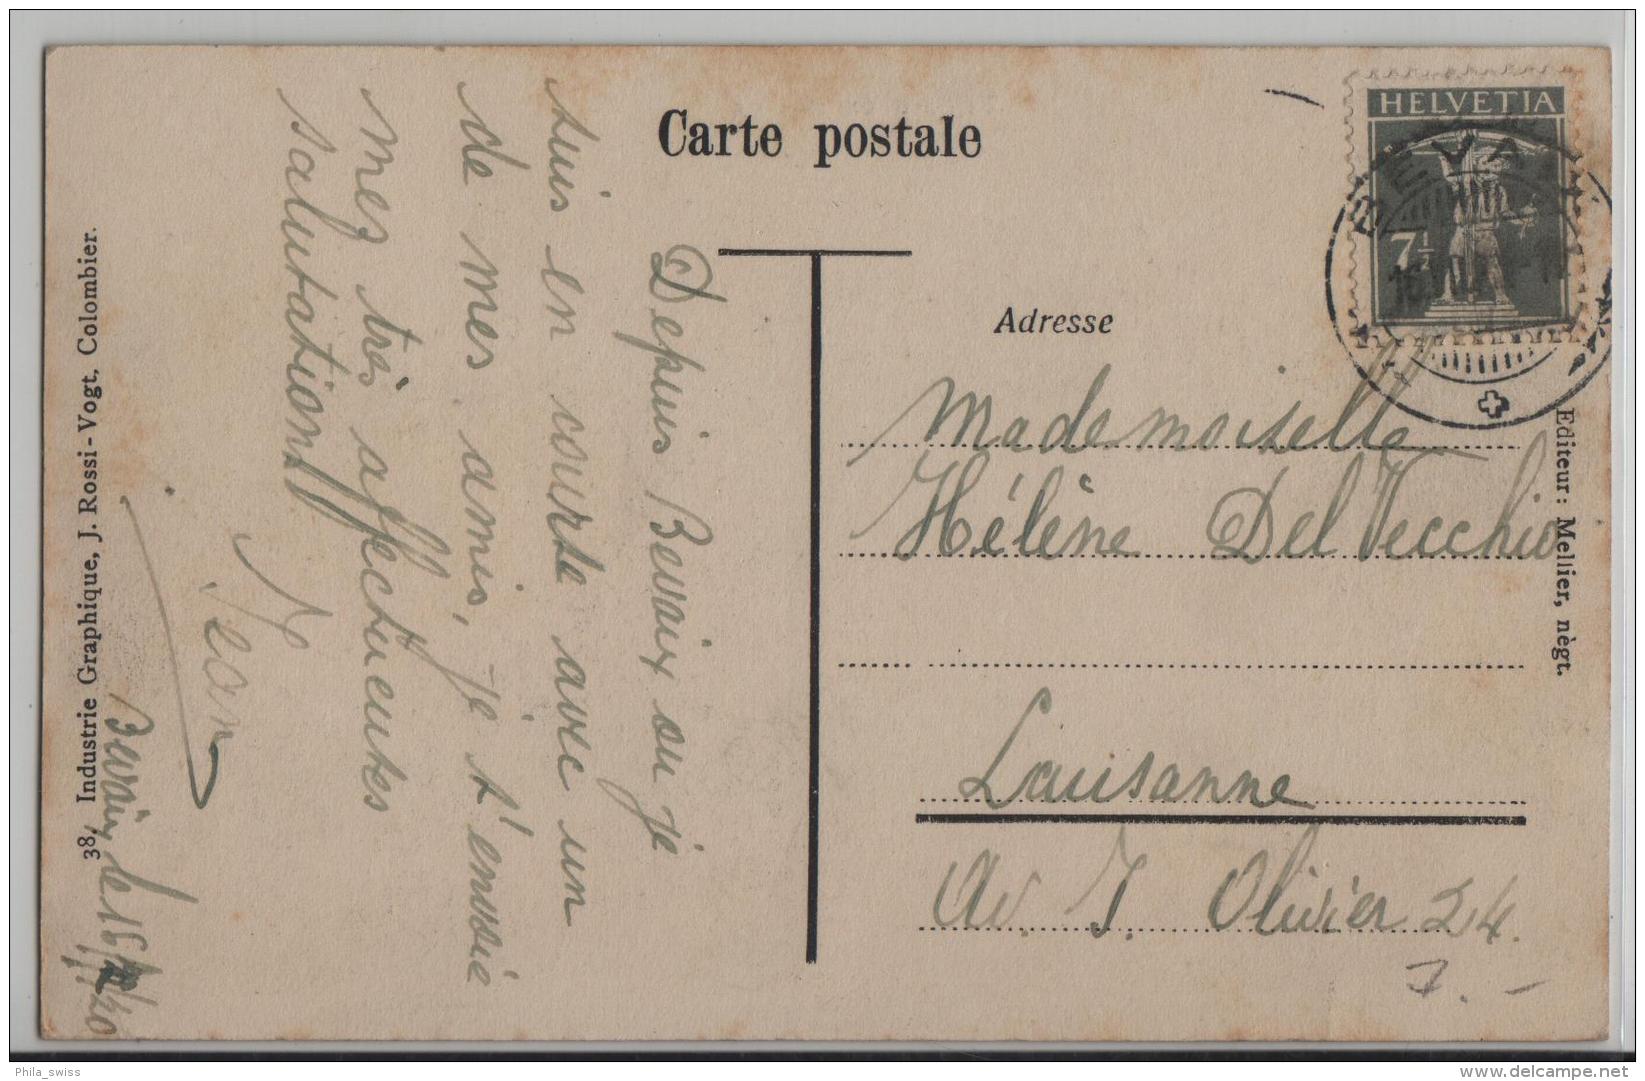 Carte postale
HELVETIA
7½
BEVAIX
Adresse
Mademoiselle
Hélène DelVecchio
Lausanne
Av. J. Olivier 24.
7. –
Editeur: Mellier, nègt.
Depuis Bevaix ou je
suis en course avec un
de mes amis, je t'envoie
mes très affectueuses
salutations
Jean
Bevaix, le 16
38, Industrie Graphique, J. Rossi-Vogt, Colombier.
Phila_swiss
www.delcampe.net